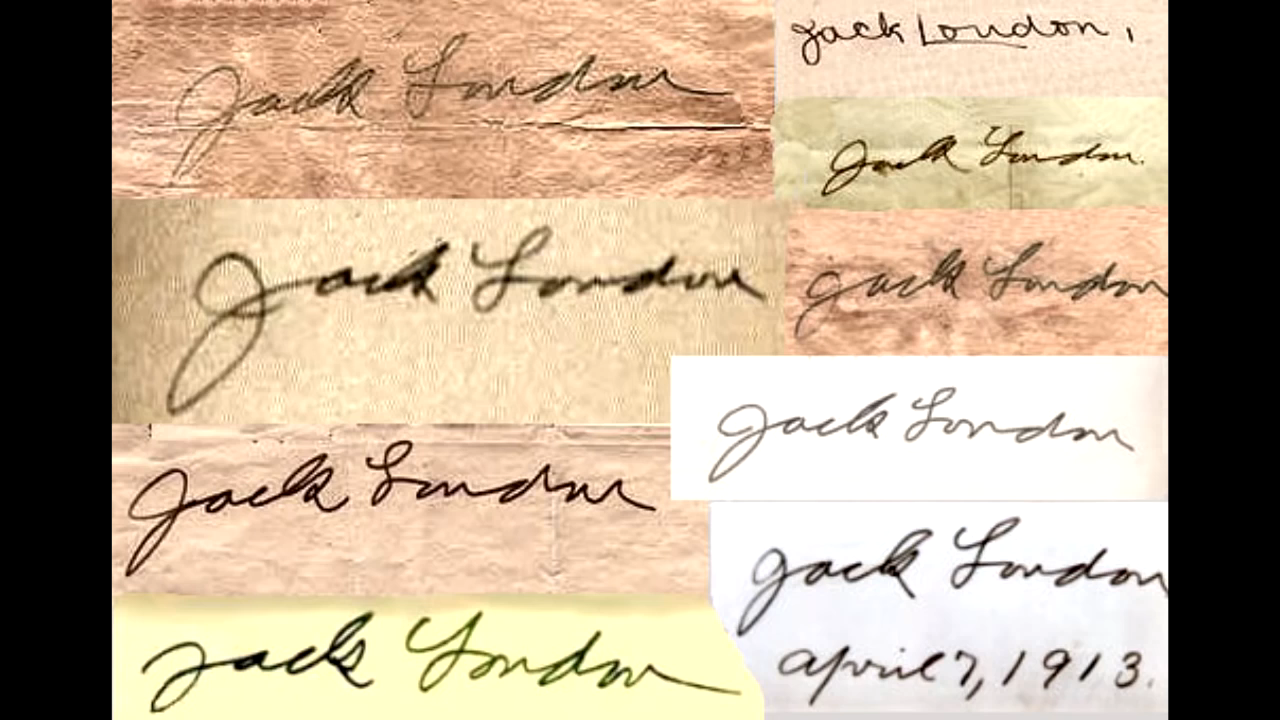 Jack London
Jack London,
Jack London.
Jack London
Jack London
Jack London
Jack London
Jack London
April 7, 1913.
Jack London